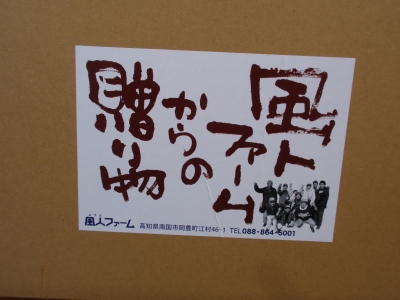 風人
ファーム
からの
贈り物
風人ファーム 高知県南国市岡豊町江村46-1 TEL 088-864-5001